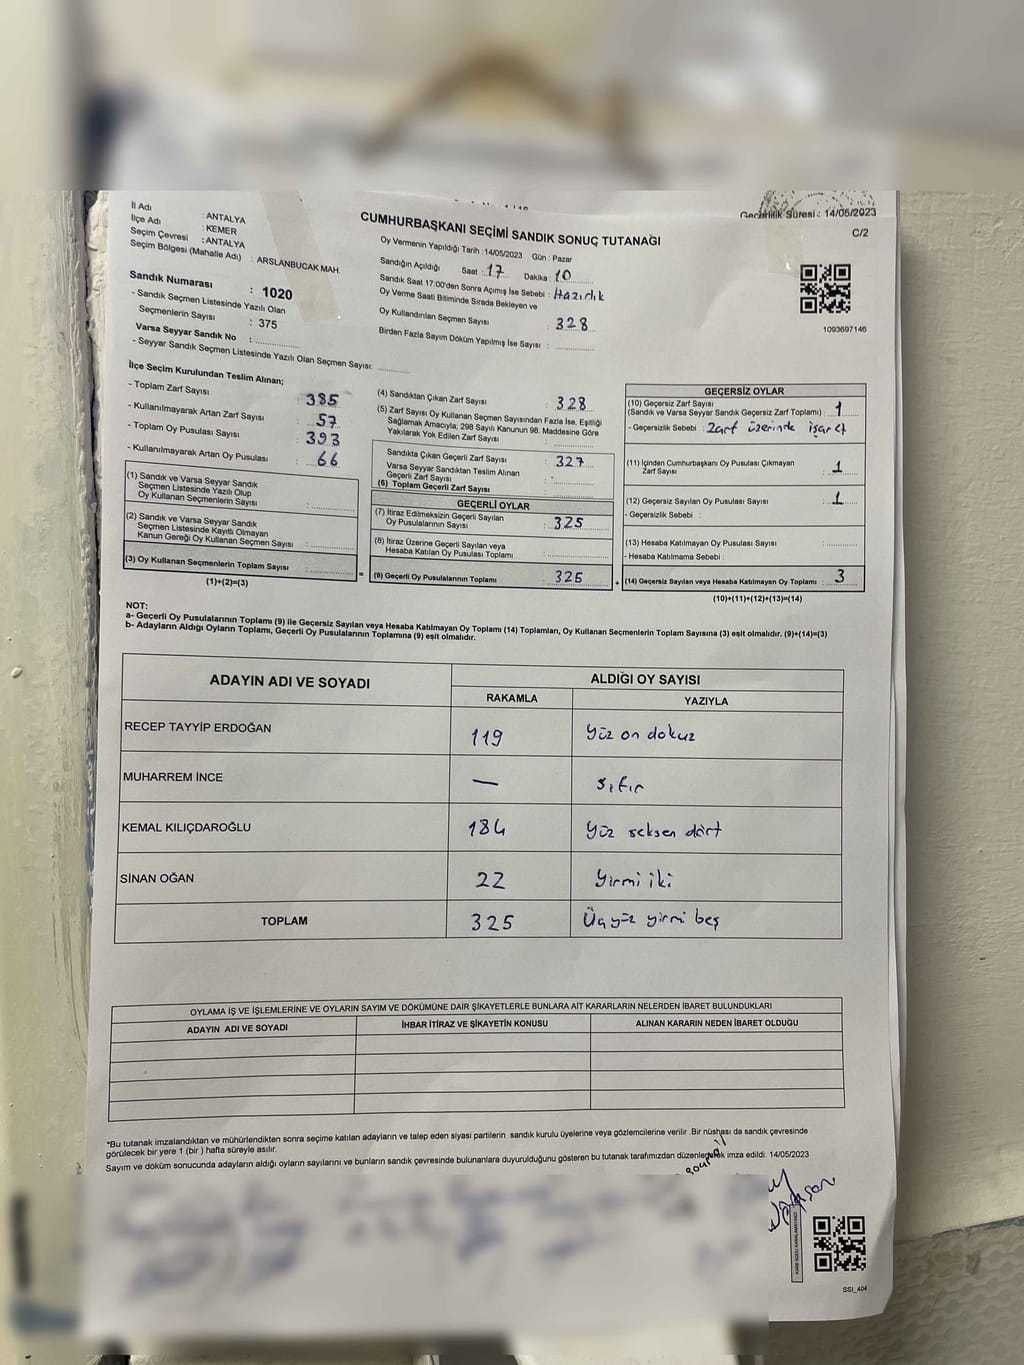 Geçerlilik Süresi : 14/05/2023
C/2
İl Adı : ANTALYA
İlçe Adı : KEMER
Seçim Çevresi : ANTALYA
Seçim Bölgesi (Mahalle Adı) : ARSLANBUCAK MAH.
Sandık Numarası : 1020
- Sandık Seçmen Listesinde Yazılı Olan
Seçmenlerin Sayısı : 375
Varsa Seyyar Sandık No :
- Seyyar Sandık Seçmen Listesinde Yazılı Olan Seçmen Sayısı:
CUMHURBAŞKANI SEÇİMİ SANDIK SONUÇ TUTANAĞI
Oy Vermenin Yapıldığı Tarih : 14/05/2023 Gün : Pazar
Sandığın Açıldığı Saat : 17 Dakika : 10
Sandık Saat 17:00'den Sonra Açımış İse Sebebi : Hazırlık
Oy Verme Saati Bitiminde Sırada Bekleyen ve
Oy Kullandırılan Seçmen Sayısı : 328
Birden Fazla Sayım Döküm Yapılmış İse Sayısı :
1093697146
İlçe Seçim Kurulundan Teslim Alınan;
- Toplam Zarf Sayısı : 385
- Kullanılmayarak Artan Zarf Sayısı : 57
- Toplam Oy Pusulası Sayısı : 393
- Kullanılmayarak Artan Oy Pusulası : 66
(1) Sandık ve Varsa Seyyar Sandık
Seçmen Listesinde Yazılı Olup
Oy Kullanan Seçmenlerin Sayısı :
(2) Sandık ve Varsa Seyyar Sandık
Seçmen Listesinde Kayıtlı Olmayan
Kanun Gereği Oy Kullanan Seçmen Sayısı :
(3) Oy Kullanan Seçmenlerin Toplam Sayısı :
(1)+(2)=(3)
(4) Sandıktan Çıkan Zarf Sayısı : 328
(5) Zarf Sayısı Oy Kullanan Seçmen Sayısından Fazla İse, Eşitliği
Sağlamak Amacıyla; 298 Sayılı Kanunun 98. Maddesine Göre
Yakılarak Yok Edilen Zarf Sayısı :
Sandıkta Çıkan Geçerli Zarf Sayısı : 327
Varsa Seyyar Sandıktan Teslim Alınan
Geçerli Zarf Sayısı :
(6) Toplam Geçerli Zarf Sayısı :
GEÇERLİ OYLAR
(7) İtiraz Edilmeksizin Geçerli Sayılan
Oy Pusulalarının Sayısı : 325
(8) İtiraz Üzerine Geçerli Sayılan veya
Hesaba Katılan Oy Pusulası Toplamı :
= (9) Geçerli Oy Pusulalarının Toplamı 325 +
GEÇERSİZ OYLAR
(10) Geçersiz Zarf Sayısı
(Sandık ve Varsa Seyyar Sandık Geçersiz Zarf Toplamı) : 1
- Geçersizlik Sebebi : Zarf üzerinde işaret
(11) İçinden Cumhurbaşkanı Oy Pusulası Çıkmayan
Zarf Sayısı : 1
(12) Geçersiz Sayılan Oy Pusulası Sayısı : 1
- Geçersizlik Sebebi :
(13) Hesaba Katılmayan Oy Pusulası Sayısı :
- Hesaba Katılmama Sebebi :
(14) Geçersiz Sayılan veya Hesaba Katılmayan Oy Toplamı : 3
(10)+(11)+(12)+(13)=(14)
NOT:
a- Geçerli Oy Pusulalarının Toplamı (9) ile Geçersiz Sayılan veya Hesaba Katılmayan Oy Toplamı (14) Toplamları, Oy Kullanan Seçmenlerin Toplam Sayısına (3) eşit olmalıdır. (9)+(14)=(3)
b- Adayların Aldığı Oyların Toplamı, Geçerli Oy Pusulalarının Toplamına (9) eşit olmalıdır.
ADAYIN ADI VE SOYADI ALDIĞI OY SAYISI
RAKAMLA YAZIYLA
RECEP TAYYİP ERDOĞAN 119 Yüz on dokuz
MUHARREM İNCE — sıfır
KEMAL KILIÇDAROĞLU 184 Yüz seksen dört
SİNAN OĞAN 22 Yirmi iki
TOPLAM 325 Üçyüz yirmi beş
OYLAMA İŞ VE İŞLEMLERİNE VE OYLARIN SAYIM VE DÖKÜMÜNE DAİR ŞİKAYETLERLE BUNLARA AİT KARARLARIN NELERDEN İBARET BULUNDUKLARI
ADAYIN ADI VE SOYADI İHBAR İTİRAZ VE ŞİKAYETİN KONUSU ALINAN KARARIN NEDEN İBARET OLDUĞU
*Bu tutanak imzalandıktan ve mühürlendikten sonra seçime katılan adayların ve talep eden siyasi partilerin sandık kurulu üyelerine veya gözlemcilerine verilir .Bir nüshası da sandık çevresinde
görülecek bir yere 1 (bir ) hafta süreyle asılır.
Sayım ve döküm sonucunda adayların aldığı oyların sayılarını ve bunların sandık çevresinde bulunanlara duyurulduğunu gösteren bu tutanak tarafımızdan düzenlenerek imza edildi. 14/05/2023
SSI_404